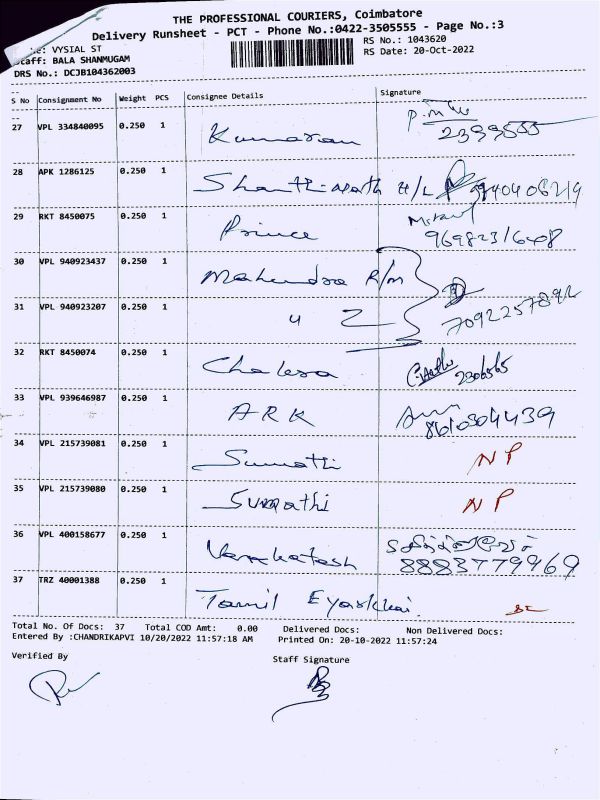 THE PROFESSIONAL COURIERS, Coimbatore
Delivery Runsheet - PCT - Phone No.:0422-3505555 - Page No.:3
VYSIAL ST
RS No.: 1043620
Staff: BALA SHANMUGAM
RS Date: 20-Oct-2022
DRS No.: DCJB104362003
S No Consignment No Weight PCS Consignee Details Signature
27 VPL 334840095 0.250 1 Kumaran
28 APK 1286125 0.250 1 H/L
29 RKT 8450075 0.250 1 Prince
30 VPL 940923437 0.250 1 Mahendra R/m
31 VPL 940923207 0.250 1 " 2
32 RKT 8450074 0.250 1
33 VPL 939646987 0.250 1 ARK 8610304439
34 VPL 215739081 0.250 1 Sumathi NP
35 VPL 215739080 0.250 1 Sumathi NP
36 VPL 400158677 0.250 1 Venkatesh 8883779969
37 TRZ 40001388 0.250 1 Tamil
Total No. Of Docs: 37 Total COD Amt: 0.00 Delivered Docs: Non Delivered Docs:
Entered By :CHANDRIKAPVI 10/20/2022 11:57:18 AM Printed On: 20-10-2022 11:57:24
Verified By Staff Signature